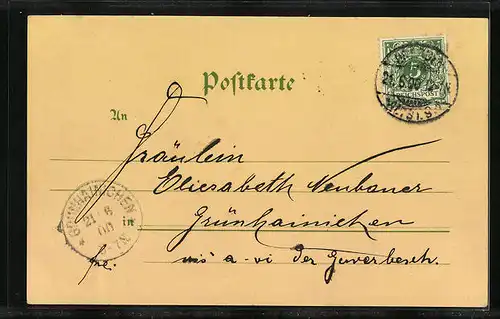 Postkarte
5
REICHSPOST
An
Fräulein
Elisabeth Neubauer
in Grünhainichen
vis a-vi der Gewerbesch.
GRÜNHAINICHEN
21 6
00